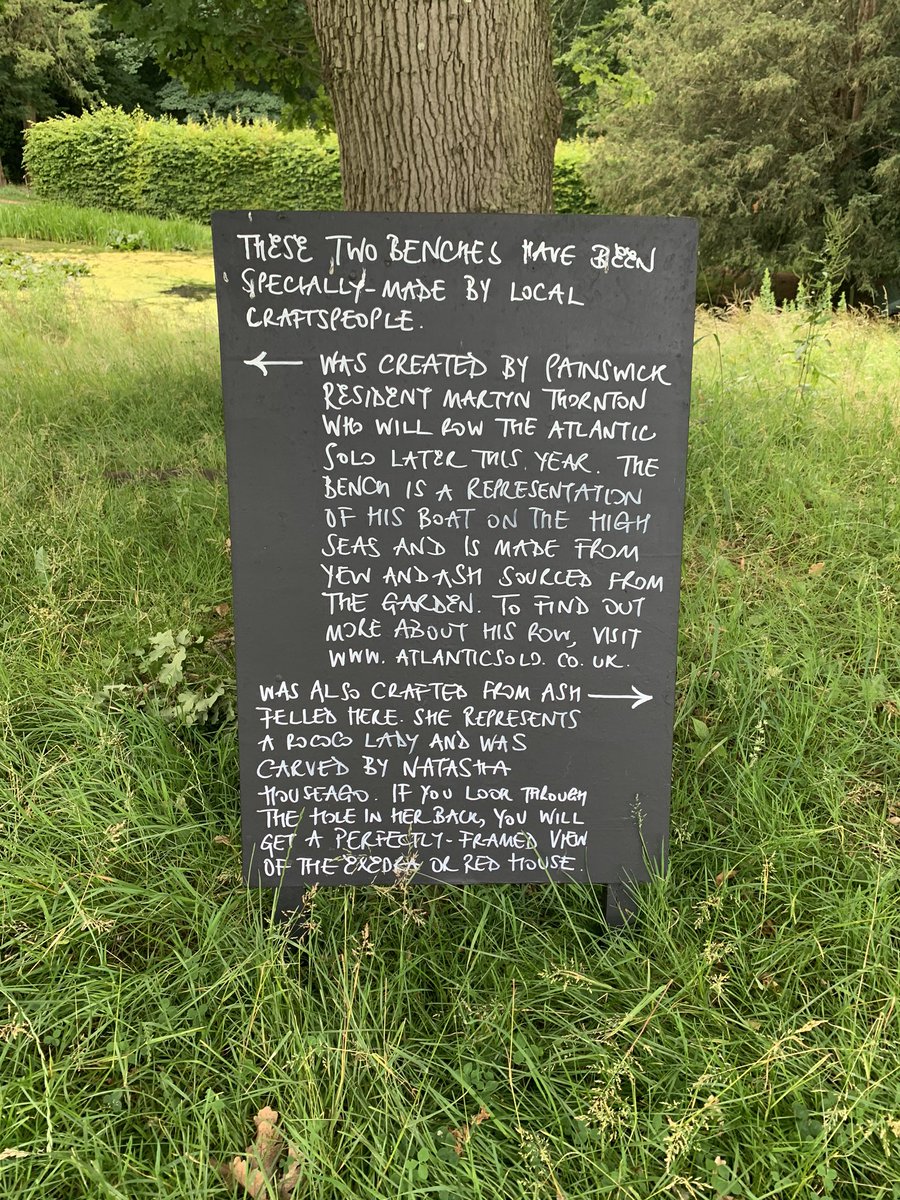 THESE TWO BENCHES HAVE BEEN
SPECIALLY-MADE BY LOCAL
CRAFTSPEOPLE.
← WAS CREATED BY PAINSWICK
RESIDENT MARTYN THORNTON
WHO WILL ROW THE ATLANTIC
SOLO LATER THIS YEAR. THE
BENCH IS A REPRESENTATION
OF HIS BOAT ON THE HIGH
SEAS AND IS MADE FROM
YEW AND ASH SOURCED FROM
THE GARDEN. TO FIND OUT
MORE ABOUT HIS ROW, VISIT
WWW. ATLANTICSOLO. CO. UK.
WAS ALSO CRAFTED FROM ASH →
FELLED HERE. SHE REPRESENTS
A ROCOCO LADY AND WAS
CARVED BY NATASHA
HOUSEAGO. IF YOU LOOK THROUGH
THE HOLE IN HER BACK, YOU WILL
GET A PERFECTLY-FRAMED VIEW
OF THE EXEDRA OR RED HOUSE.